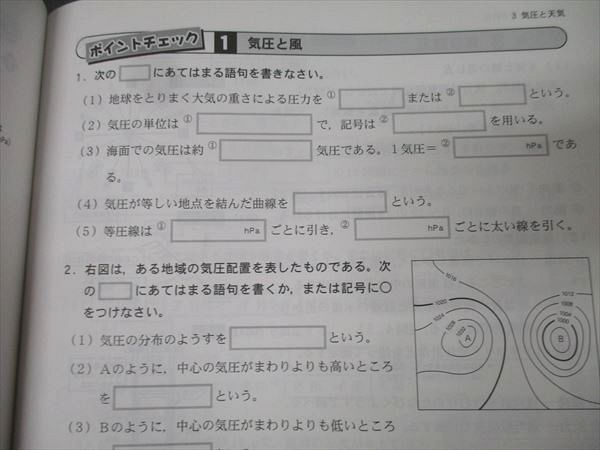 3 気圧と天気
ポイントチェック 1 気圧と風
1. 次の□にあてはまる語句を書きなさい。
(1) 地球をとりまく大気の重さによる圧力を ① または ② という。
(2) 気圧の単位は ① で，記号は ② を用いる。
(3) 海面での気圧は約 ① 気圧である。1気圧＝ ② hPa であ
る。
(4) 気圧が等しい地点を結んだ曲線を という。
(5) 等圧線は ① hPa ごとに引き， ② hPa ごとに太い線を引く。
2. 右図は，ある地域の気圧配置を表したものである。次
の□にあてはまる語句を書くか，または記号に○
をつけなさい。
(1) 気圧の分布のようすを という。
(2) Aのように，中心の気圧がまわりよりも高いところ
を という。
(3) Bのように，中心の気圧がまわりよりも低いところ
という。
1016
1020
1024
1028
1032
A
1012
1008
1004
1000
B